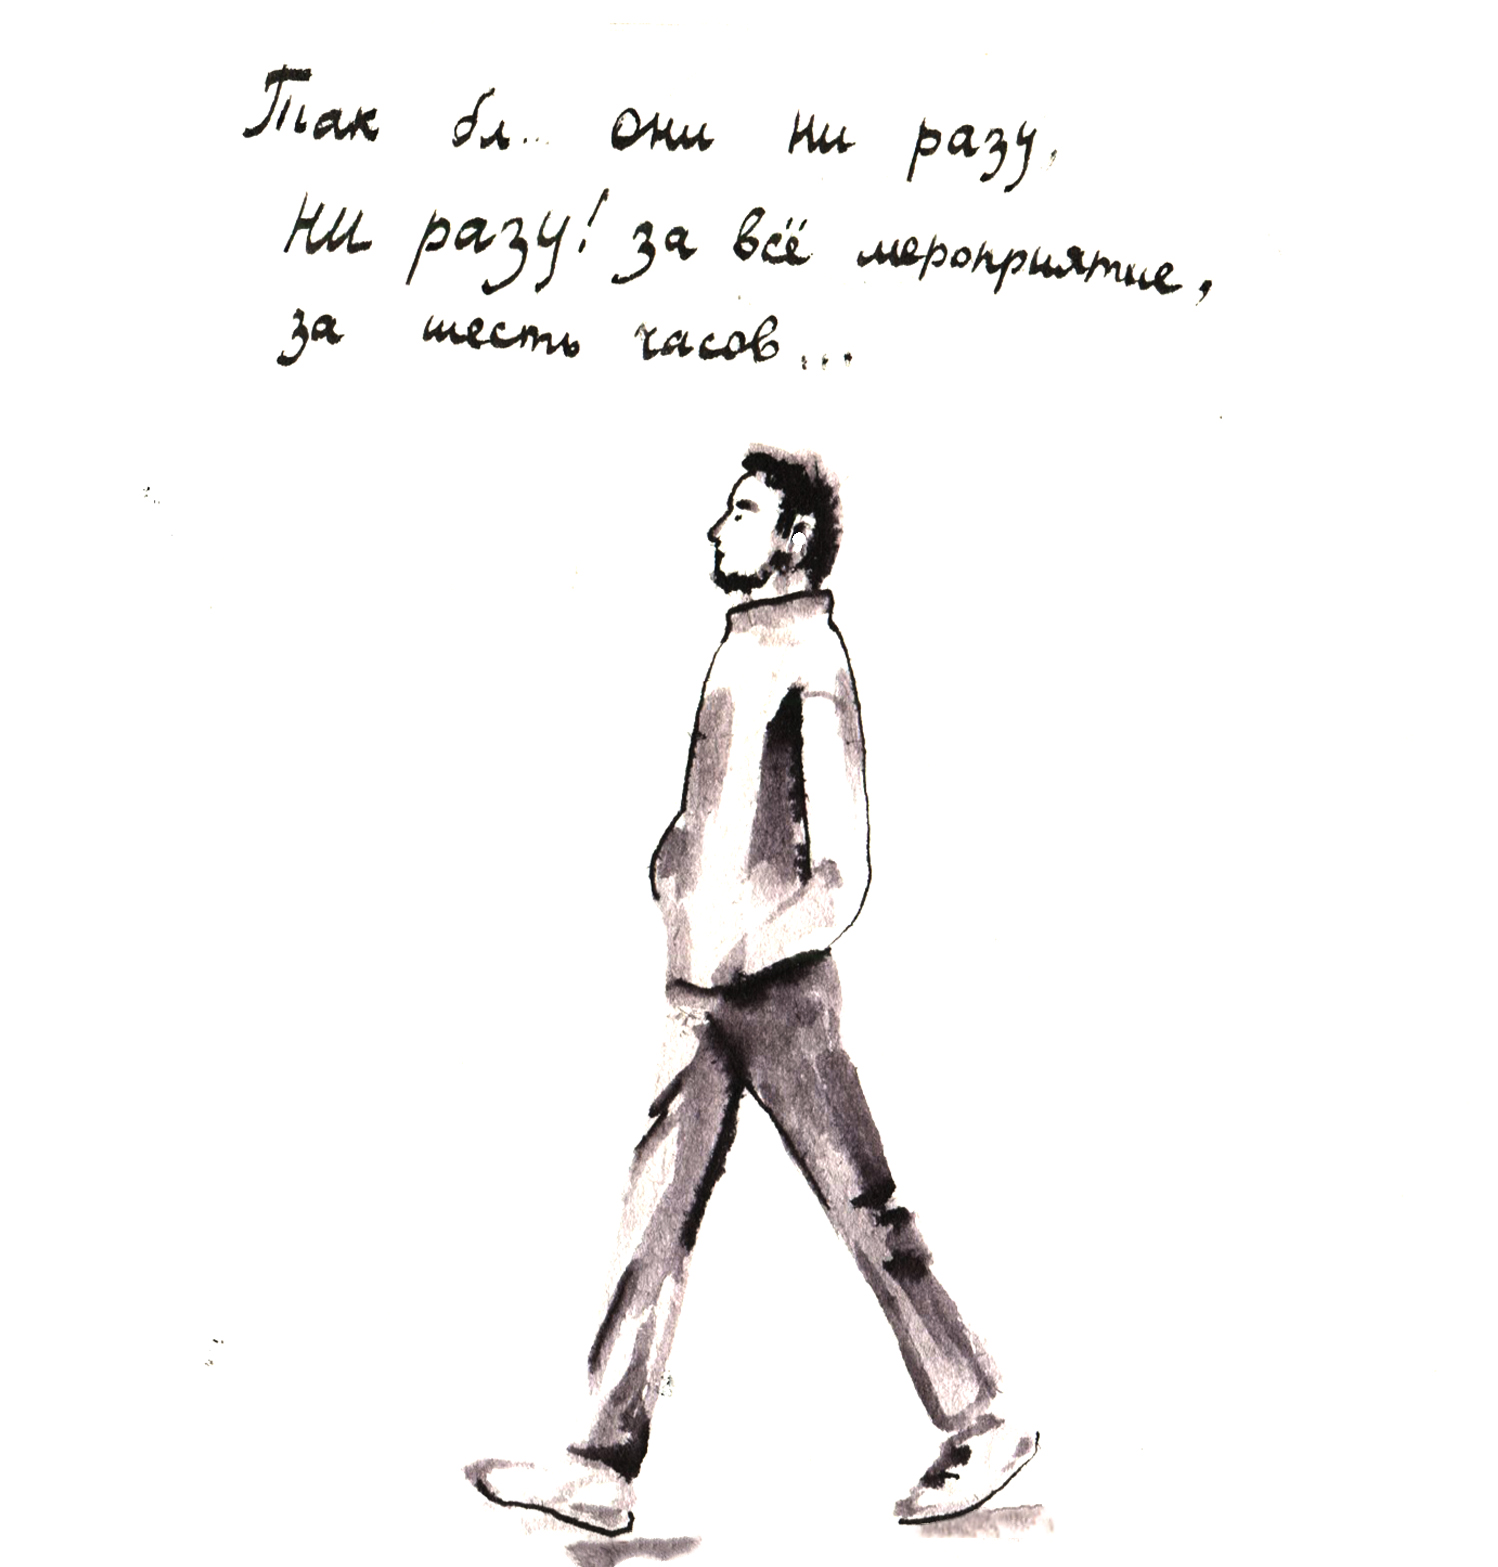 Так бл... они ни разу,
ни разу! за всё мероприятие,
за шесть часов...